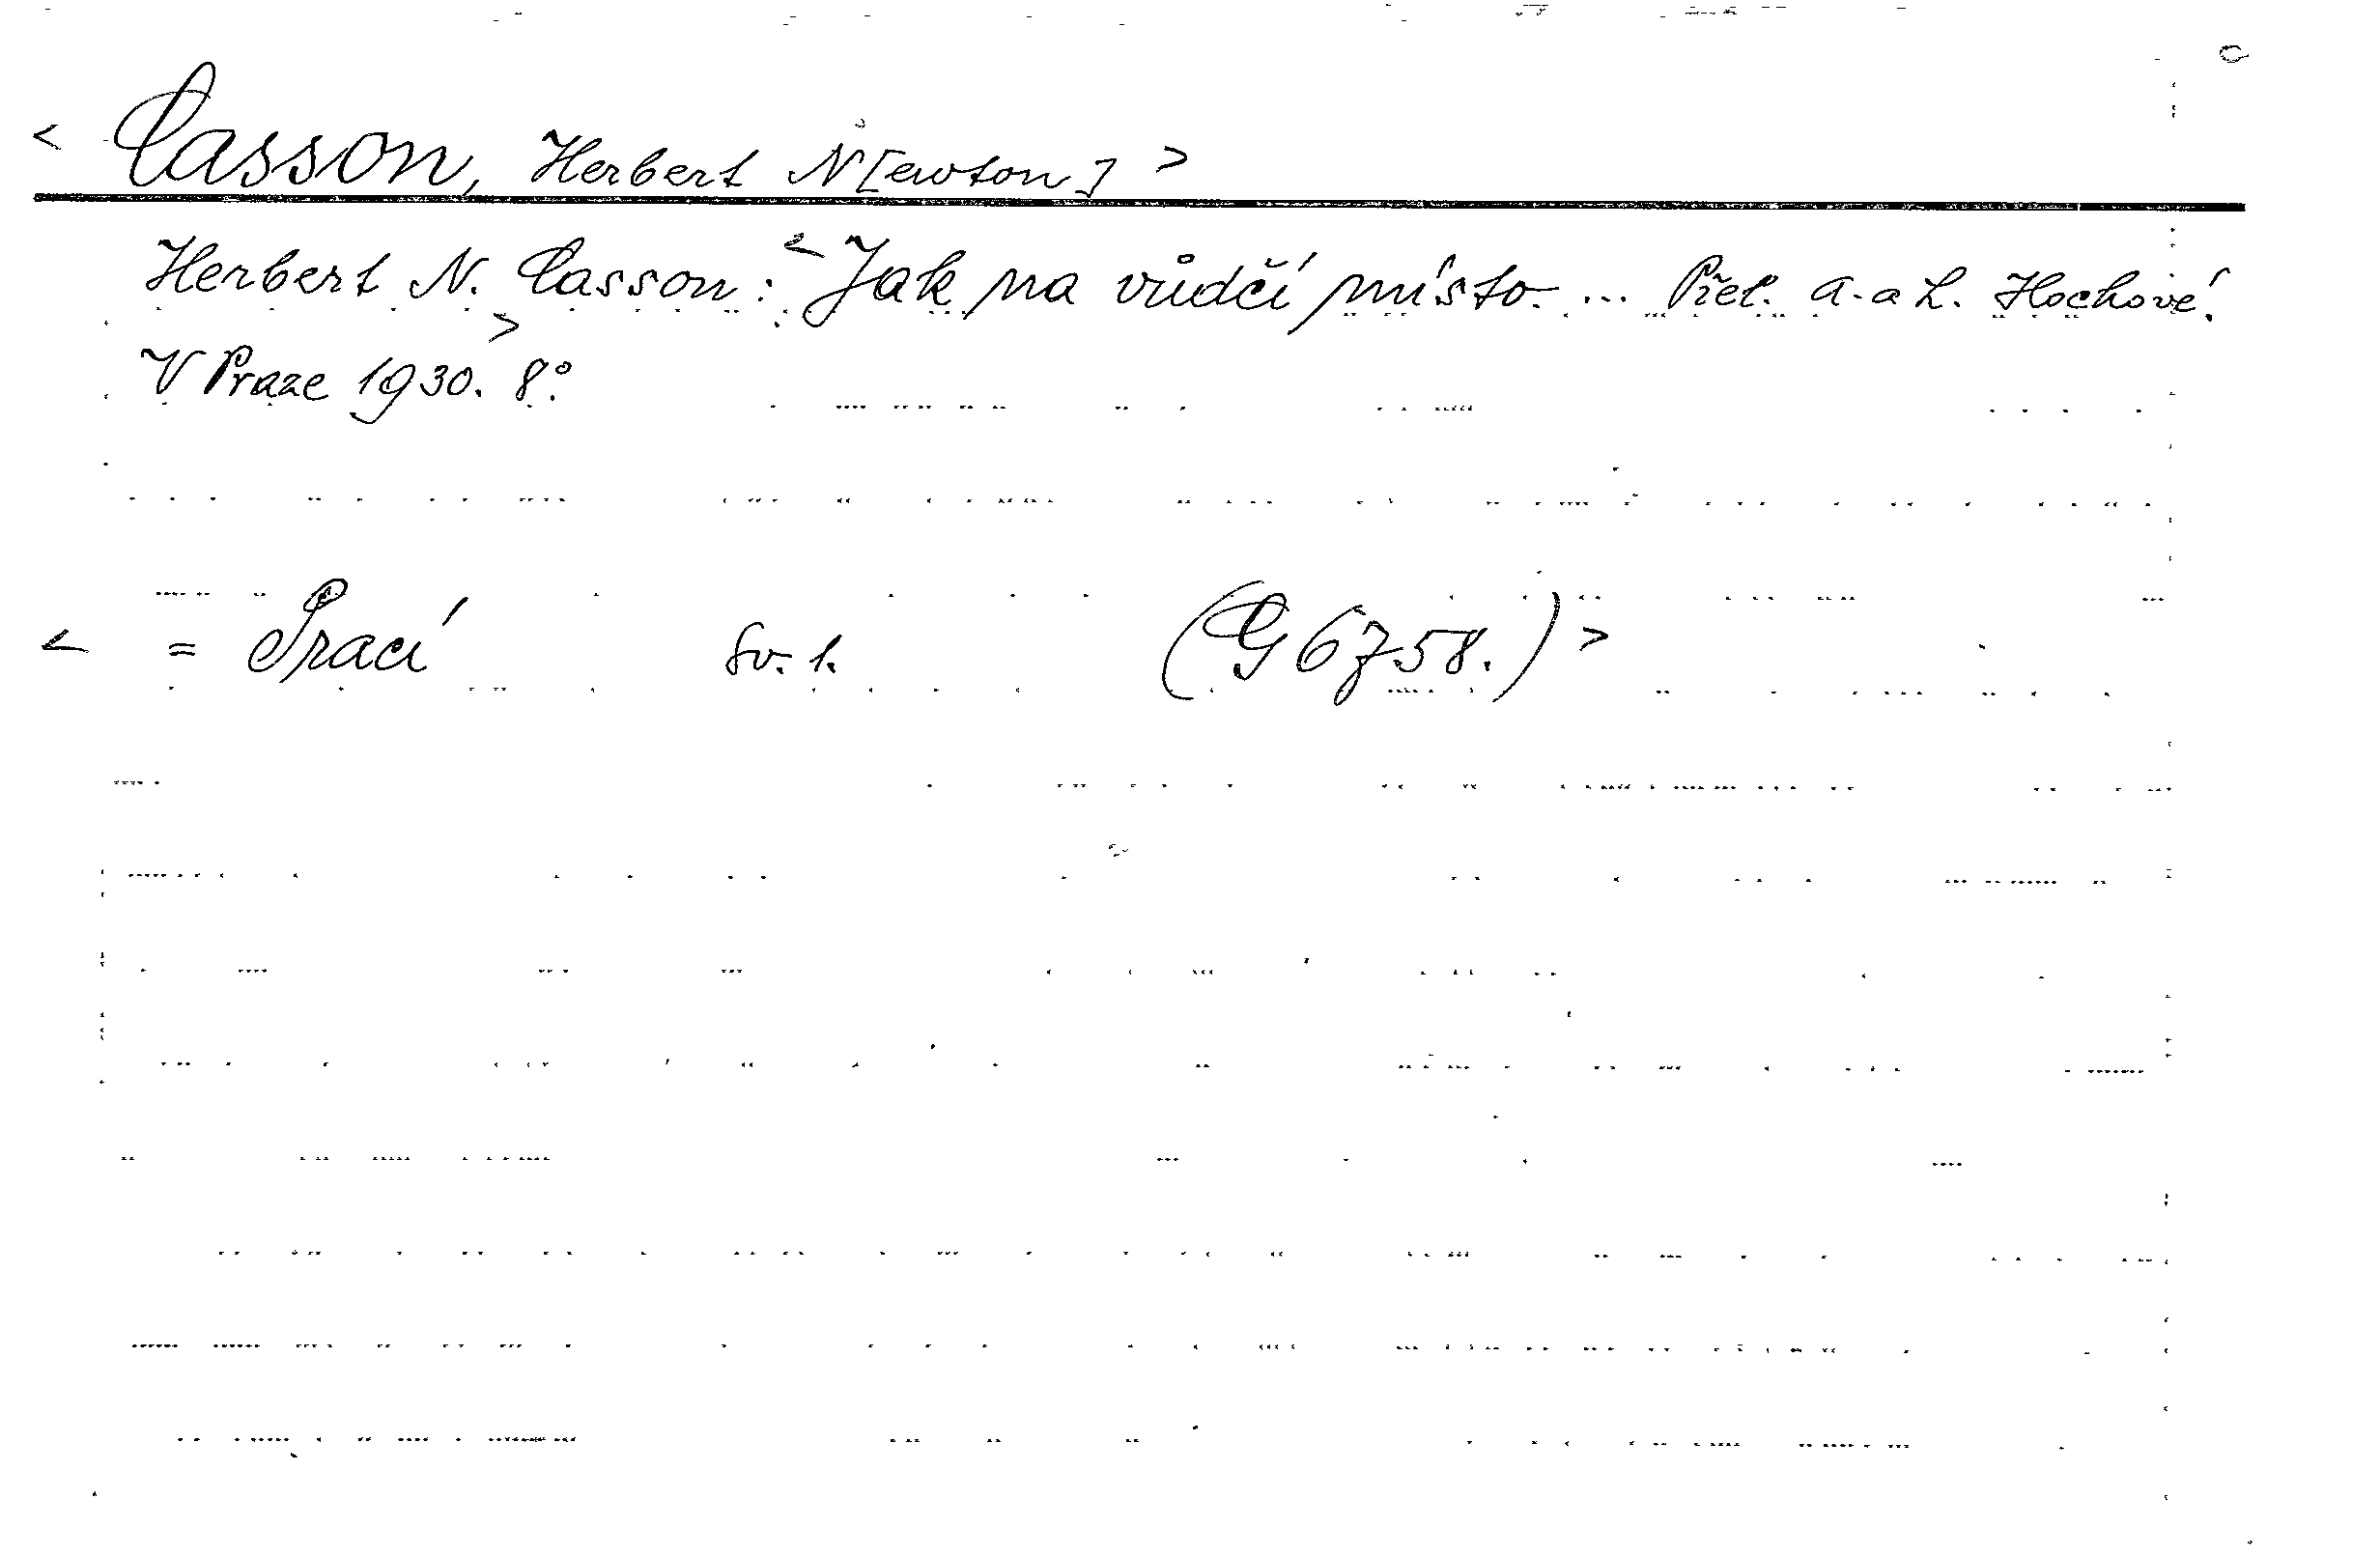 < Casson, Herbert N[ewton] >
Herbert N. Casson: < Jak na vůdčí místo. ... Přel. A. a L. Hochové.
V Praze 1930. > 8°.
< = Prací Sv. 1. (G 6758.) >